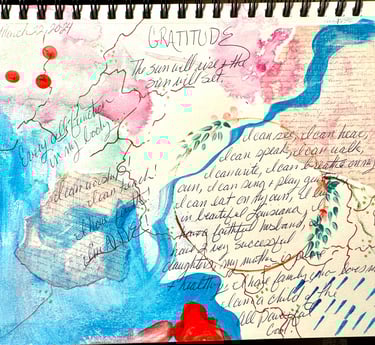 March 2, 2024
GRATITUDE
The sun will rise & the
sun will set.
Every cell function
in my body
I can worship
I can touch
I have
I'm ALIVE
I can see, I can hear,
I can speak, I can walk,
I can write, I can breathe on my
own, I can sing & play
I can eat on my own, I
in beautiful Louisiana, I
have a faithful husband, I
have 2 very successful
daughters, my mother is
& healthy, I have family who loves me
I am a child of the
All Powerful
God